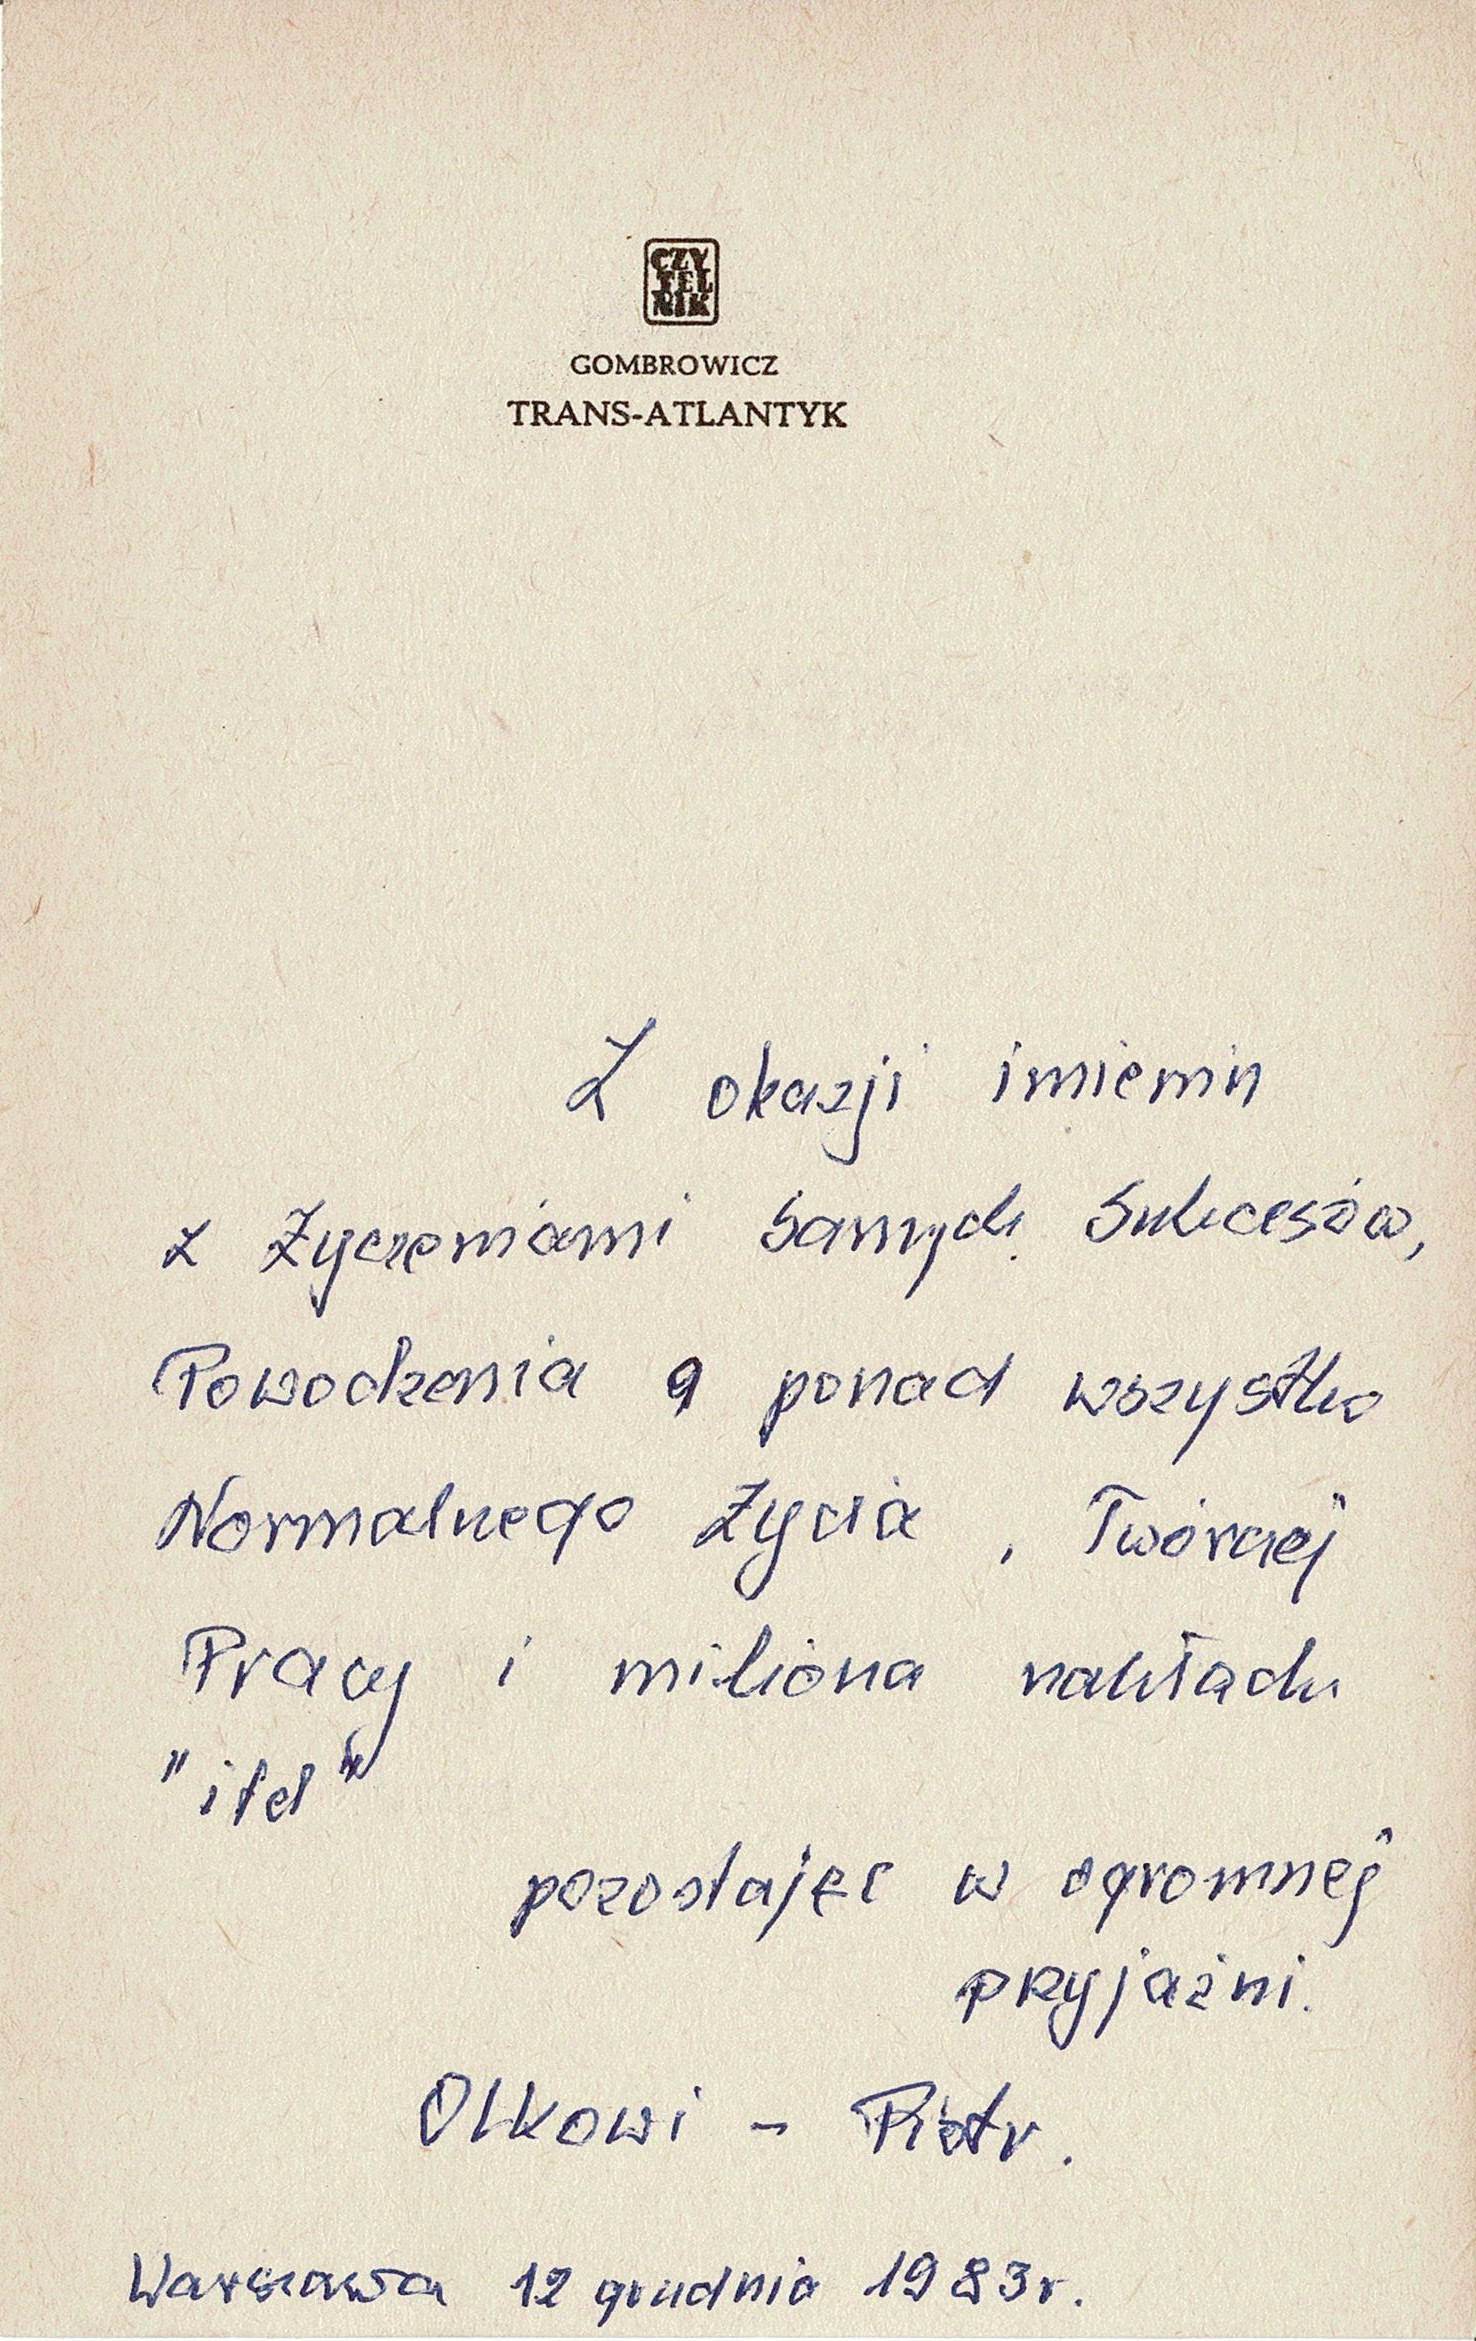 CZY
TEL
NIK
GOMBROWICZ
TRANS-ATLANTYK
Z okazji imienin
z Życzeniami Samych Sukcesów,
Powodzenia a ponad wszystko
Normalnego Życia, Twórczej
Pracy i miliona nakładu
"itd"
pozostając w ogromnej
przyjaźni.
Olkowi – Piotr.
Warszawa 12 grudnia 1983r.